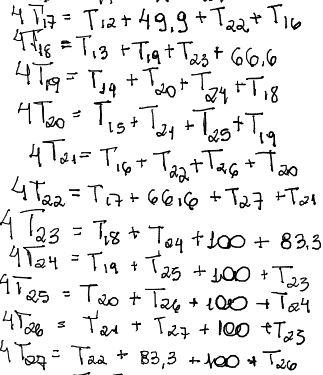 4T17 = T12 + 49,9 + T22 + T16
4T18 = T13 + T19 + T23 + 66,6
4T19 = T19 + T20 + T24 + T18
4T20 = T15 + T21 + T25 + T19
4T21 = T16 + T22 + T26 + T20
4T22 = T17 + 66,6 + T27 + T21
4T23 = T18 + T24 + 100 + 83,3
4T24 = T19 + T25 + 100 + T23
4T25 = T20 + T26 + 100 + T24
4T26 = T21 + T27 + 100 + T25
4T27 = T22 + 83,3 + 100 + T26